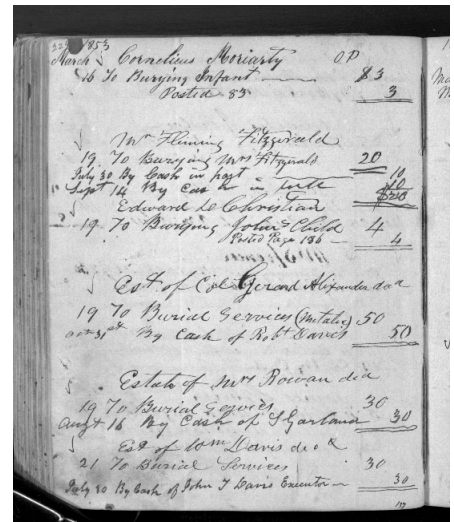 1853
March Cornelius Moriarty OP
16 To Burying Infant $3
Posted 83 3
Mr Fleming Fitzgerald
19 To Burying Mrs Fitzgerald 20
July 30 By Cash in part 10
Sept 14 By Cash in full 10
$20
Edward D Christian
19 To Burying John's Child 4
Posted Page 186 4
Est of Col Gerard Alexander decd
19 To Burial Services (Metalic) 50
Oct 31st By Cash of Robt Davis 50
Estate of Mrs Rowan decd
19 To Burial Services 30
Augt 16 By Cash of S Garland 30
Est of Wm Davis decd
21 To Burial Services 30
July 30 By Cash of John T Davis Executor 30